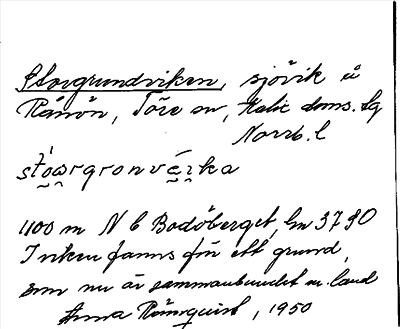 Storgrundviken, sjövik å
Rånön, Töre sn, Kalix doms. lg
Norrb. l
stóargronvǽika
1100 m N Bodöberget,
I viken fanns för ett grund,
som nu är sammanbundet m. land
Anna Rönnquist, 1950